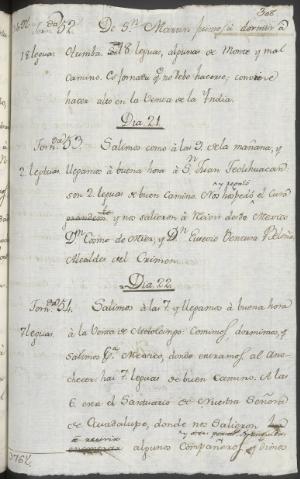 308
Jorn.da 52. De S.n Martin fuimos à dormir à
18 leguas Otumba. 18 leguas, algunas de Monte y mal
camino. Es Jornada q.e no debe hacerse; conviene
hacer alto en la Venta de la India.
Dia. 21.
Jorn.da 53. Salimos como à las 9. de la mañana, y
2. leguas llegamos à buena hora à S.n Juan Teotihuacan
son 2. leguas de buen camino. Nos hospedó el Cura
y nos salieron à recivir desde Mexico
D.n Cosme de Mier, y D.n Eusevio Ventura Beleña
Alcaldes del Crimen.
Dia. 22.
Jorn.da 54. Salimos à las 7. y llegamos à buena hora
7 leguas. à la Venta de Metolcingo. Comimos, dormimos, y
salimos p.a Mexico, donde entramos al ano-
checer. hai 7 leguas de buen camino. A las
6. era el Santuario de Nuestra Señora
de Guadalupe, donde nos salieron
à recivir
algunos Compañeros, y dimos